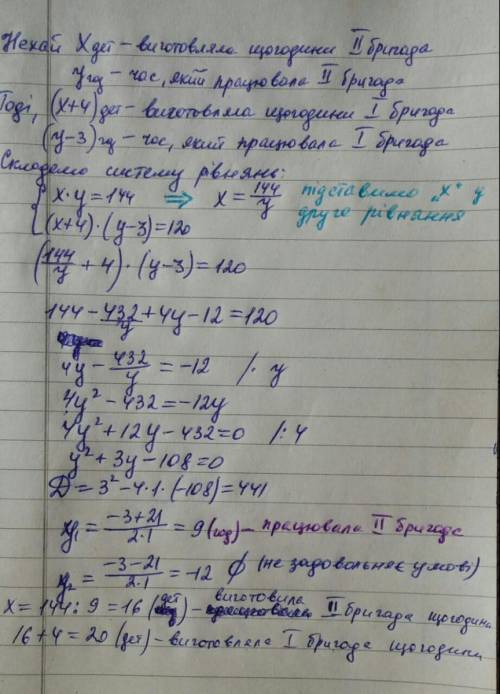 Нехай X дет – виготовляла щогодини II бригада
y год – час, який працювала II бригада
Тоді, (x+4) дет – виготовляла щогодини I бригада
(y-3) год – час, який працювала I бригада
Складемо систему рівнянь:
{ x·y=144 ⇒ x = 144/y підставимо „x" у
(x+4)·(y-3)=120 друге рівняння
(144/y + 4)·(y-3)=120
144 - 432/y + 4y - 12 = 120
4y - 432/y = -12 /· y
4y² - 432 = -12y
4y² + 12y - 432 = 0 /: 4
y² + 3y - 108 = 0
D = 3² - 4·1·(-108) = 441
y₁ = (-3+21)/(2·1) = 9 (год) – працювала II бригада
y₂ = (-3-21)/(2·1) = -12 ∅ (не задовольняє умові)
x = 144 : 9 = 16 (дет) – виготовила II бригада щогодини
16+4 = 20 (дет) – виготовляла I бригада щогодини